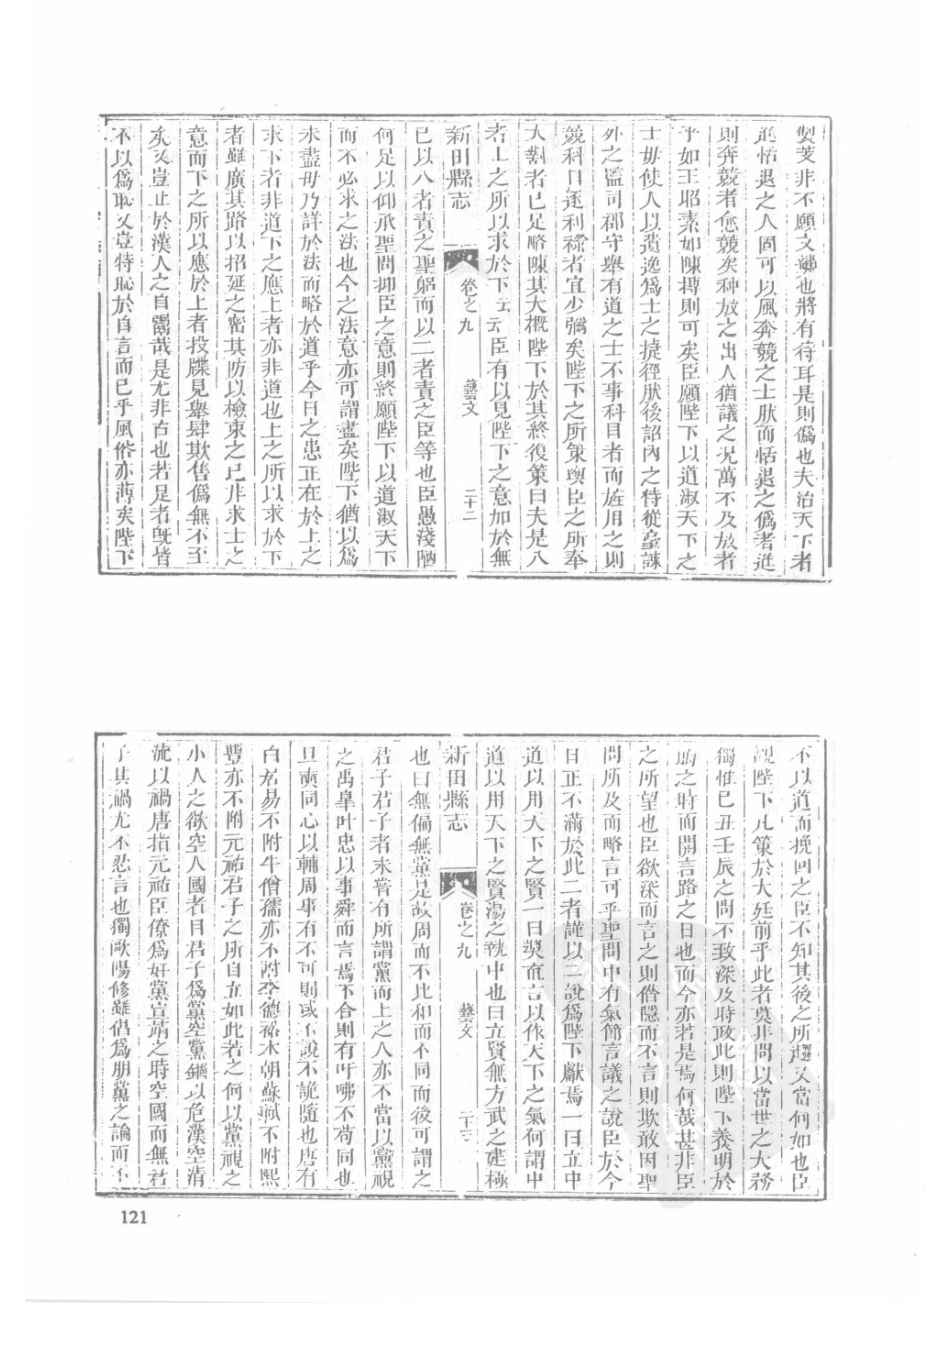 製芰非不願文繡也將有待耳是則僞也夫治天下者
進恬退之人固可以風奔競之士肰而恬退之僞者進
則奔競者愈競矣种放之出人猶議之况萬不及放者
乎如王昭素如陳摶則可矣臣願陛下以道淑天下之
士毋使人以遺逸爲士之捷徑肰後詔內之侍從臺諫
外之監司郡守舉有道之士不事科目者而旌用之則
競科目逐利祿者宜少彌矣陛下之所策與臣之所奉
大對者已足略陳其大概陛下於其終復策曰夫是八
者上之所以求於下云云臣有以見陛下之意加於無
新田縣志 卷之九 藝文 二十二
已以八者責之聖躬而以二者責之臣等也臣愚淺陋
何足以仰承聖問抑臣之意則終願陛下以道淑天下
而不必求之法也今之法意亦可謂盡矣陛下猶以爲
未盡毋乃詳於法而略於道乎今日之患正在於上之
求下者非道下之應上者亦非道也上之所以求於下
者雖廣其路以招延之密其防以檢束之已非求士之
意而下之所以應於上者投牒見舉肆欺售僞無不至
矣又豈止於漢人之自鬻哉是尤非古也若是者旣皆
不以爲恥又豈特恥於自言而已乎風俗亦薄矣陛下
不以道而挽回之臣不知其後之所趨又當何如也臣
觀陛下凡策於大廷前乎此者莫非問以當世之大務
獨惟己丑壬辰之問不致深及時政此則陛下養明於
晦之時而開言路之日也而今亦若是焉何哉甚非臣
之所望也臣欲深而言之則僭隱而不言則欺敢因聖
問所及而略言可乎聖問中有氣節言議之說臣於今
日正不滿於此二者謹以二說爲陛下獻焉一曰立中
道以用天下之賢一曰奬直言以作天下之氣何謂中
道以用天下之賢湯之執中也曰立賢無方武之建極
新田縣志 卷之九 藝文 二十三
也曰無偏無黨是故周而不比和而不同而後可謂之
君子君子者未嘗有所謂黨而上之人亦不當以黨視
之禹皐叶忠以事舜而言焉不合則有吁咈不苟同也
旦奭同心以輔周事有不可則或不說不詭隨也唐有
白居易不附牛僧孺亦不附李德裕本朝蘇軾不附熙
豐亦不附元祐君子之所自立如此若之何以黨視之
小人之欲空人國者目君子爲黨空黨錮以危漢空清
流以禍唐指元祐臣僚爲奸黨宣靖之時空國而無君
子其禍尤不忍言也獨歐陽修雖倡爲朋黨之論而不
121